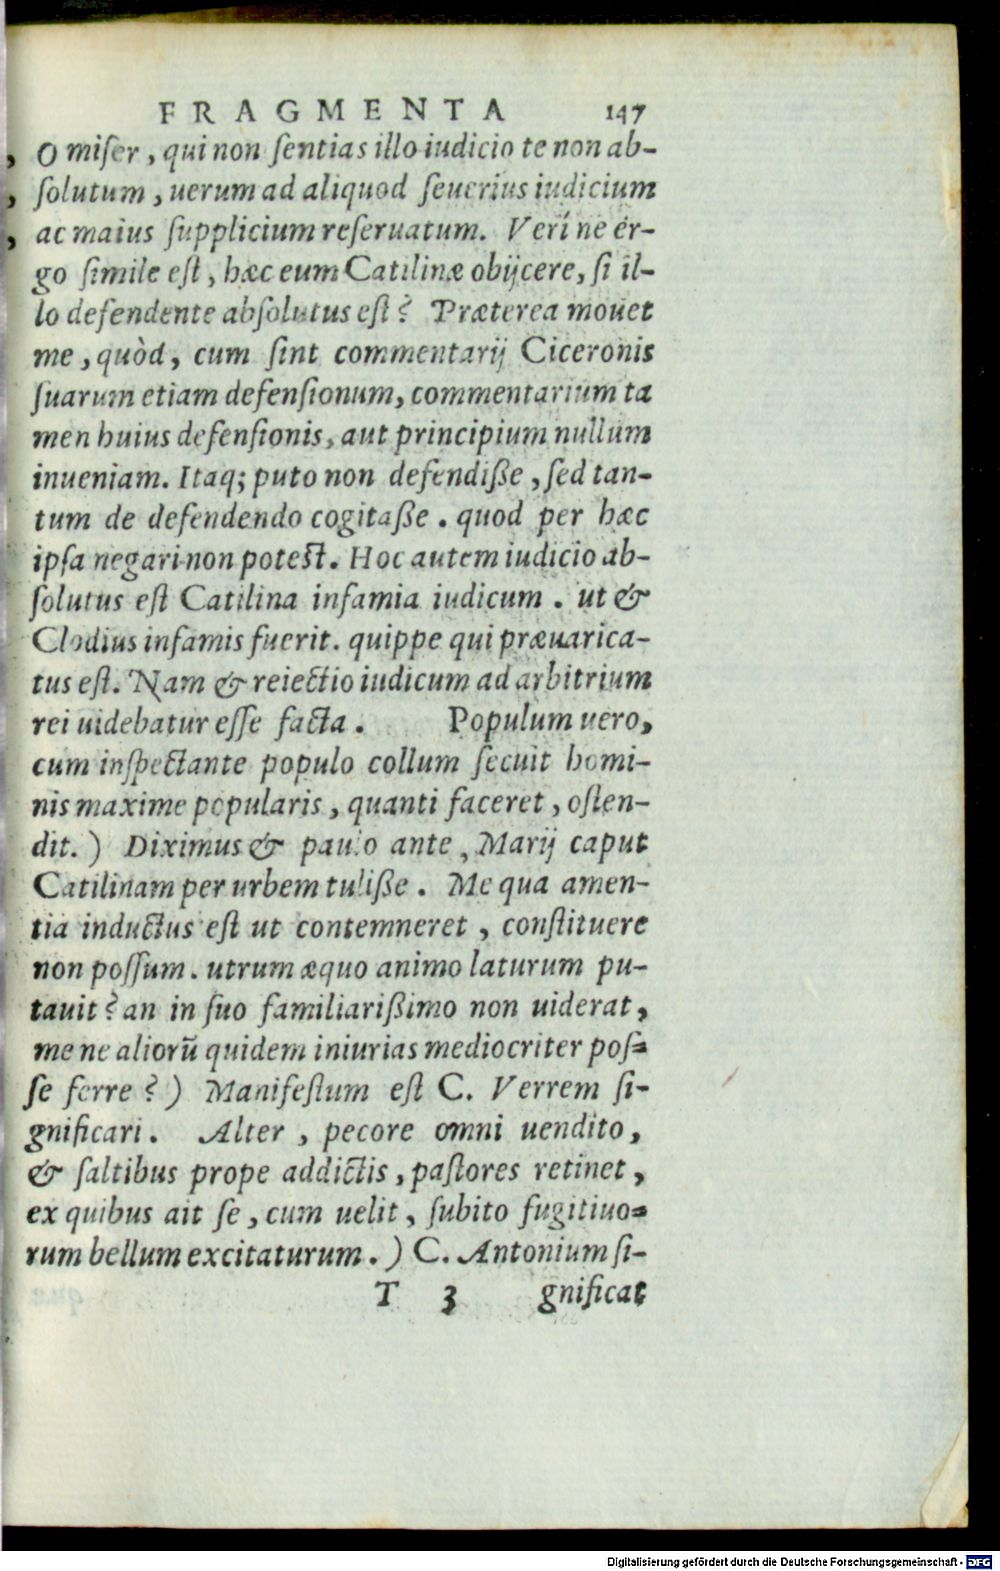 FRAGMENTA 147
, O miſer, qui non ſentias illo iudicio te non ab-
, ſolutum, uerum ad aliquod ſeuerius iudicium
, ac maius ſupplicium reſeruatum. Verí ne er-
go ſimile eſt, hæc eum Catilinæ obijcere, ſi il-
lo defendente abſolutus eſt? Præterea mouet
me, quòd, cum ſint commentarij Ciceronis
ſuarum etiam defenſionum, commentarium ta
men huius defenſionis, aut principium nullum
inueniam. Itaq; puto non defendiße, ſed tan-
tum de defendendo cogitaße. quod per hæc
ipſa negari non poteſt. Hoc autem iudicio ab-
ſolutus eſt Catilina infamia iudicum. ut &
Clodius infamis fuerit. quippe qui præuarica-
tus eſt. Nam & reiectio iudicum ad arbitrium
rei uidebatur eſſe facta. Populum uero,
cum inſpectante populo collum ſecuit homi-
nis maxime popularis, quanti faceret, oſten-
dit.) Diximus & paulo ante, Marij caput
Catilinam per urbem tuliße. Me qua amen-
tia inductus eſt ut contemneret, conſtituere
non poſſum. utrum æquo animo laturum pu-
tauit? an in ſuo familiarißimo non uiderat,
me ne aliorũ quidem iniurias mediocriter poſ-
ſe ferre?) Manifeſtum eſt C. Verrem ſi-
gnificari. Alter, pecore omni uendito,
& ſaltibus prope addictis, paſtores retinet,
ex quibus ait ſe, cum uelit, ſubito fugitiuo-
rum bellum excitaturum.) C. Antonium ſi-
T 3 gnificat
Digitalisierung gefördert durch die Deutsche Forschungsgemeinschaft - DFG